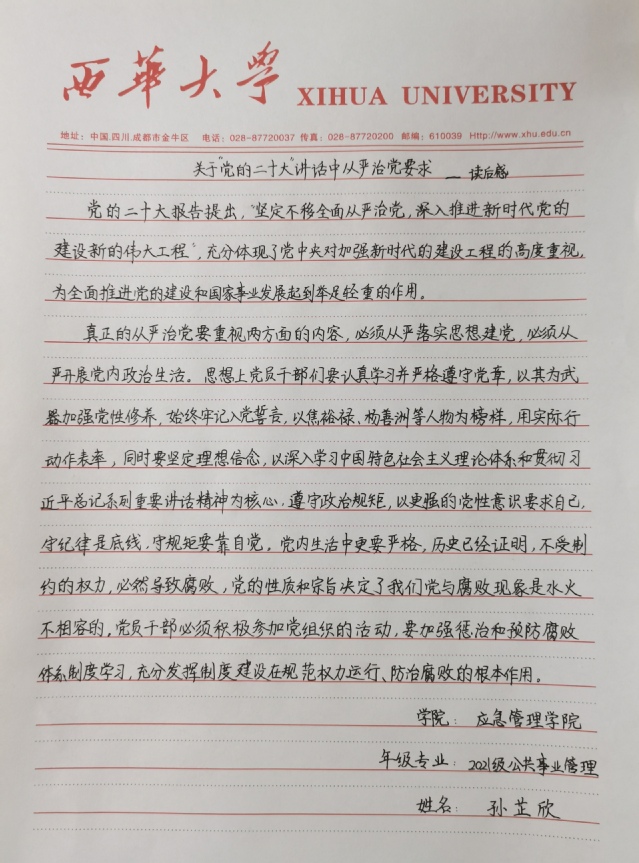 西華大学 XIHUA UNIVERSITY
地址：中国.四川.成都市金牛区 电话：028-87720037 传真：028-87720200 邮编：610039 Http://www.xhu.edu.cn
关于"党的二十大"讲话中从严治党要求 — 读后感
党的二十大报告提出，"坚定不移全面从严治党，深入推进新时代党的
建设新的伟大工程"，充分体现了党中央对加强新时代的建设工程的高度重视，
为全面推进党的建设和国家事业发展起到举足轻重的作用。
真正的从严治党要重视两方面的内容，必须从严落实思想建党，必须从
严开展党内政治生活。思想上党员干部们要认真学习并严格遵守党章，以其为武
器加强党性修养，始终牢记入党誓言，以焦裕禄、杨善洲等人物为榜样，用实际行
动作表率，同时要坚定理想信念，以深入学习中国特色社会主义理论体系和贯彻习
近平总记系列重要讲话精神为核心，遵守政治规矩，以更强的党性意识要求自己，
守纪律是底线，守规矩要靠自觉，党内生活中更要严格，历史已经证明，不受制
约的权力，必然导致腐败，党的性质和宗旨决定了我们党与腐败现象是水火
不相容的，党员干部必须积极参加党组织的活动，要加强惩治和预防腐败
体系制度学习，充分发挥制度建设在规范权力运行、防治腐败的根本作用。
学院：应急管理学院
年级专业：2021级公共事业管理
姓名：孙芷欣